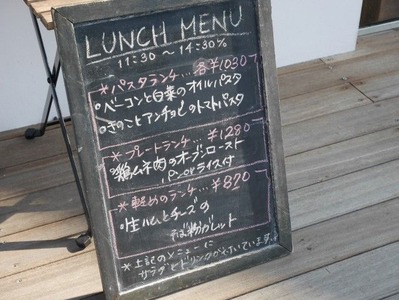 LUNCH MENU
11:30～14:30
*パスタランチ...各¥1030
・ベーコンと白菜のオイルパスタ
・きのことアンチョビのトマトパスタ
*プレートランチ...¥1,280
・鶏ムネ肉のオーブンロースト
パンorライス付
*軽めのランチ...¥820
・生ハムとチーズの
そば粉ガレット
*上記のメニューに
サラダとドリンクがついています。